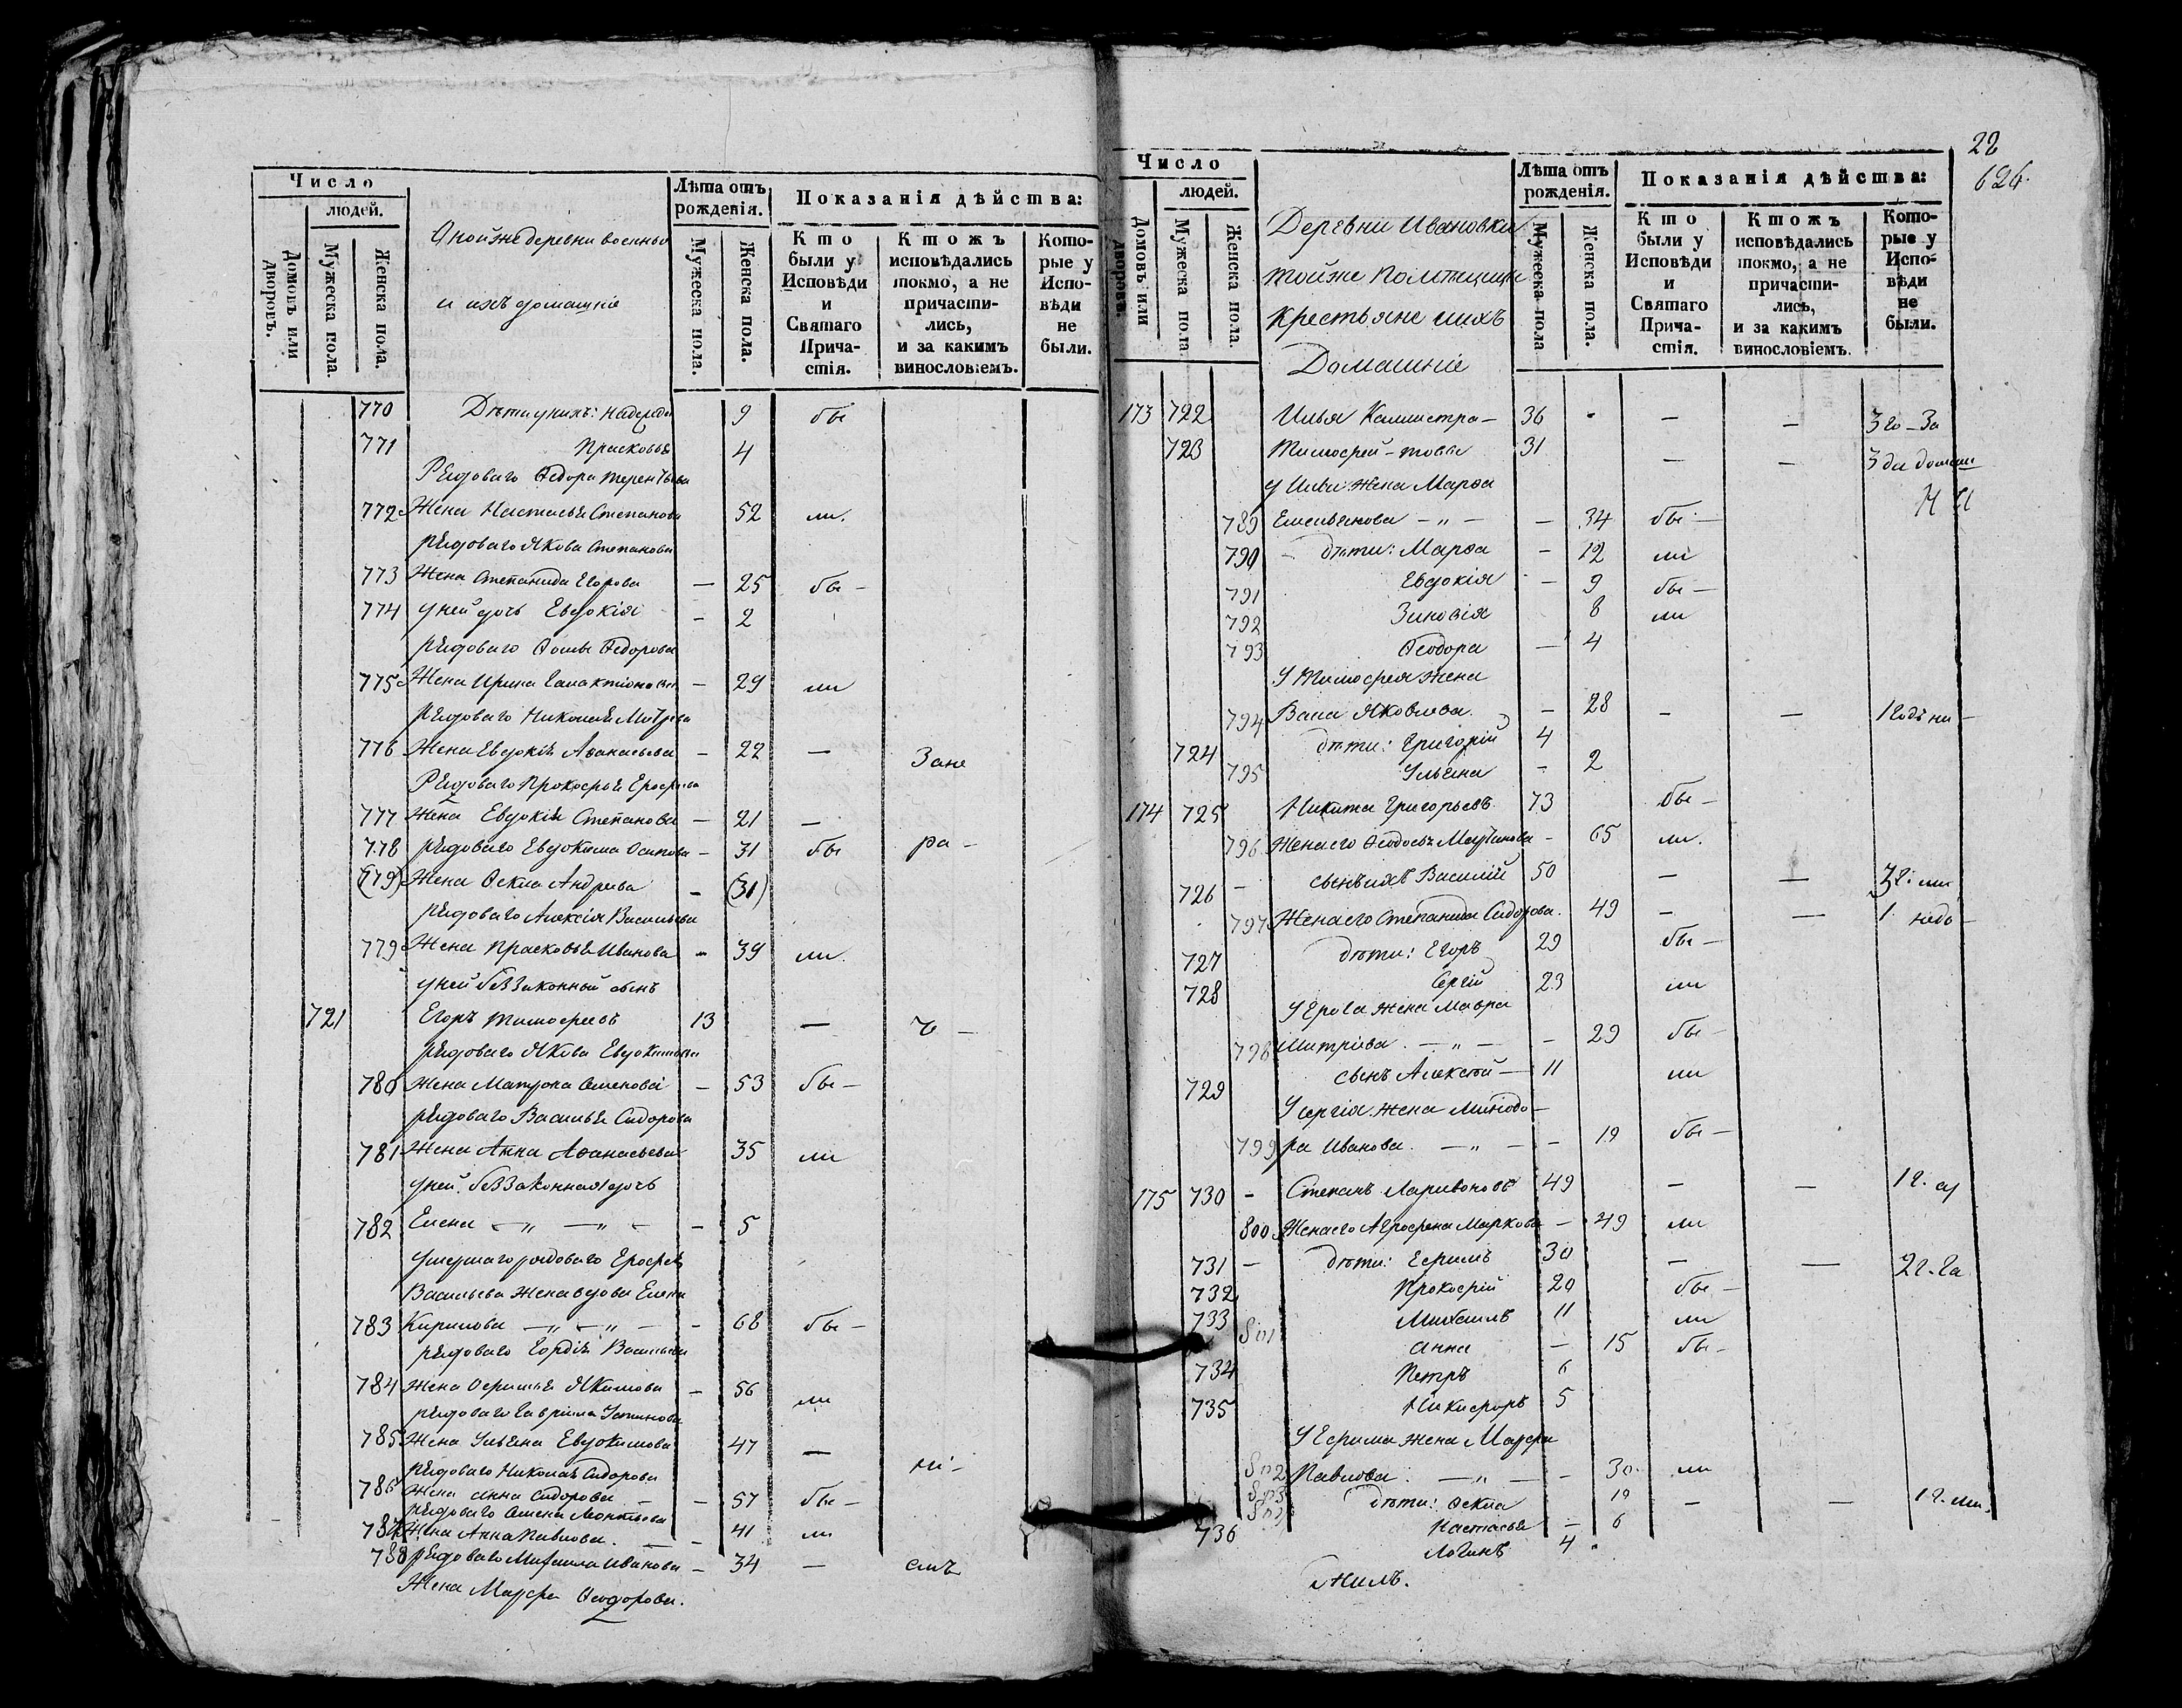 Число
людей.
Домовъ или дворовъ.
Мужеска пола.
Женска пола.
Оной же деревни военныи
и ихъ домашніе
Лѣта отъ рожденія.
Мужеска пола.
Женска пола.
Показанія дѣйства:
Кто были у Исповѣди и Святаго Причастія.
Ктожъ исповѣдались токмо, а не причастились, и за какимъ винословіемъ.
Которые у Исповѣди не были.
770 Дѣти у нихъ: Надежда 9 бы
771 Прасковья 4
Рядоваго Ѳедора Терентьева
772 Жена Настасья Степанова 52 ли.
рядоваго Якова Степанова
773 Жена Степанида Егорова — 25 бы —
774 у ней дочь Евдокія — 2
рядоваго Ѳомы Ѳедорова
775 Жена Ирина Галактіонова — 29 ли
рядоваго Николая
776 Жена Евдокія Аѳанасьева — 22 — Зане
Рядоваго Прокофья Ерофѣева
777 Жена Евдокія Степанова — 21 —
778 рядоваго Евдокима Осипова — 31 бы ра —
(779) Жена Ѳекла Андреева — (31)
рядоваго Алексія Васильева
779 Жена Прасковья Иванова — 39 ли.
у ней беззаконный сынъ
721 Егоръ Тимофеевъ 13 —
рядоваго Якова Евдокимова
780 Жена Матрона Семенова — 53 бы —
рядоваго Василья Сидорова
781 Жена Анна Аѳанасьева 35 ли
у ней беззаконная дочь
782 Елена — „ — „ — — 5
умершаго рядоваго Ерофея
Васильева жена вдова Елена
783 Кирилова — „ — „ — — 68 бы —
рядоваго Гордія Васильева
784 Жена Якимова — 56 ли
рядоваго Гавріила
785 Жена Ульяна Евдокимова 47 —
рядоваго Николая Сидорова
786 Жена Анна Сидорова — — 57 бы —
рядоваго Семена Леонтьева
787 Жена Анна Павлова. — — 41 ли
788 рядоваго Михаила Иванова — 34 — смъ
Жена Марфа Ѳеодорова.
28
626.
Число
людей.
Домовъ или дворовъ.
Мужеска пола
Женска пола.
Деревни Ивановки
тойже помѣщицы
Крестьяне и ихъ
Домашніе
Лѣта отъ рожденія.
Мужеска пола
Женска пола.
Показанія дѣйства:
Кто были у Исповѣди и Святаго Причастія.
Ктожъ исповѣдались токмо, а не причастились, и за какимъ винословіемъ.
Которые у Исповѣди не были.
173 722 Илья Каллистра — 36 — — 3 го — За
723 Тимофей — товы 31 — —
у Ильи жена Марѳа
789 Емельянова — „ — — 34 бы —
790 — дѣти: Марѳа — 12 ли
791 Евдокія — 9 бы —
792 Зиновія 8 ли
793 Ѳеодора — 4
У Тимофея жена
794 Васа Яковлева. — 28 — —
724 дѣти: Григорій 4
795 Ульяна — 2
174 725 Никита Григорьевъ 73 бы —
796 Жена его Ѳеодосья Мартинова — 65 ли.
726 — сынъ ихъ Василій 50 — —
797 Жена его Степанида Сидорова. 49 — —
727 дѣти: Егоръ 29 бы —
728 Сергій 23 ли
У Егора жена Мавра
798 Митріева. — „ — — 29 бы —
729 сынъ Алексѣй — 11 ли
У Сергія жена Минодо —
799 ра Иванова. — „ — — 19 бы —
175 730 — Степанъ Ларивоновъ 49 — —
800 Жена его Агрофена Маркова — 49 ли
731 — дѣти: Ефимъ 30 — —
732 Прокофій 20 бы —
733 Михаилъ 11 ли
801 Анна — 15 бы —
734 Петръ 6
735 Никифоръ 5
У Ефима жена Марфа
802 Павлова. — „ — — 30 ли
803 дѣти: Ѳекла 10 — —
804 Настасья — 6
736 Логинъ 4